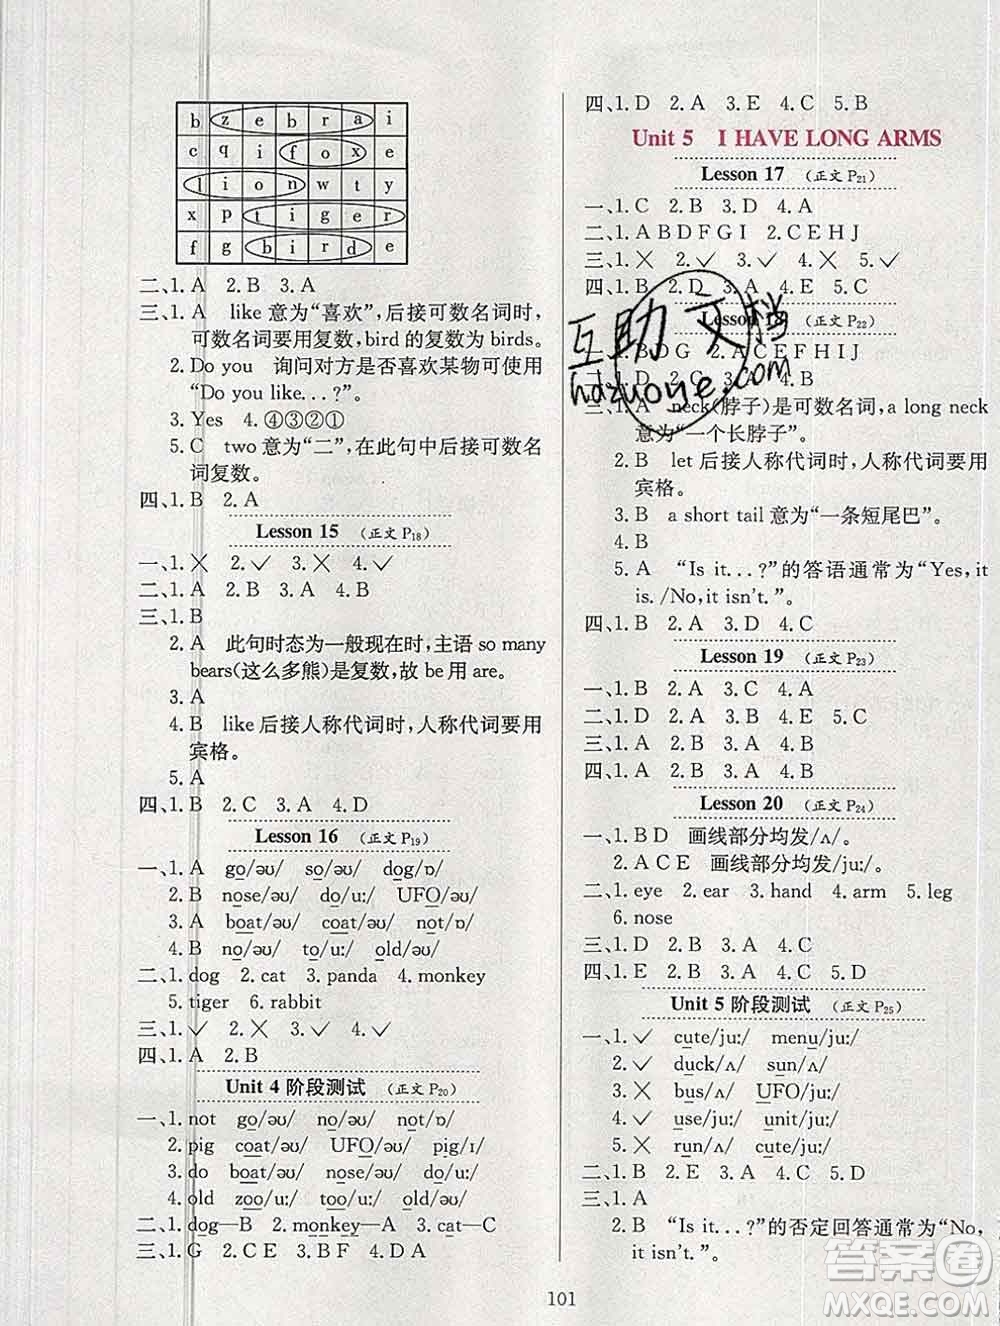 b z e b r a i
c q i f o x e
l i o n w t y
x p t i g e r
f g b i r d e
二、1. A 2. B 3. A
三、1. A like 意为“喜欢”,后接可数名词时,
可数名词要用复数,bird的复数为birds。
2. Do you 询问对方是否喜欢某物可使用
“Do you like. . . ?”
3. Yes 4. ④③②①
5. C two 意为“二”,在此句中后接可数名
词复数。
四、1. B 2. A
Lesson 15 (正文 P18)
一、1. ╳ 2. ✓ 3. ╳ 4. ✓
二、1. A 2. B 3. A 4. B
三、1. B
2. A 此句时态为一般现在时,主语 so many
bears(这么多熊)是复数,故 be 用 are。
3. A
4. B like 后接人称代词时,人称代词要用
宾格。
5. A
四、1. B 2. C 3. A 4. D
Lesson 16 (正文 P19)
一、1. A go/əʊ/ so/əʊ/ dog/ɒ/
2. B nose/əʊ/ do/u:/ UFO/əʊ/
3. A boat/əʊ/ coat/əʊ/ not/ɒ/
4. B no/əʊ/ to/u:/ old/əʊ/
二、1. dog 2. cat 3. panda 4. monkey
5. tiger 6. rabbit
三、1. ✓ 2. ╳ 3. ✓ 4. ✓
四、1. A 2. B
Unit 4 阶段测试 (正文 P20)
一、1. not go/əʊ/ no/əʊ/ not/ɒ/
2. pig coat/əʊ/ UFO/əʊ/ pig/ɪ/
3. do boat/əʊ/ nose/əʊ/ do/u:/
4. old zoo/u:/ to/u:/ old/əʊ/
二、1. dog—B 2. monkey—A 3. cat—C
三、1. G 2. C E 3. B F 4. D A
四、1. D 2. A 3. E 4. C 5. B
Unit 5 I HAVE LONG ARMS
Lesson 17 (正文 P21)
一、1. C 2. B 3. D 4. A
二、1. A B D F G I 2. C E H J
三、1. ╳ 2. ✓ 3. ✓ 4. ╳ 5. ✓
四、1. B 2. D 3. A 4. E 5. C
Lesson 18 (正文 P22)
一、1. B D G 2. A C E F H I J
二、1. D 2. C 3. A 4. B
三、1. A neck(脖子)是可数名词,a long neck
意为“一个长脖子”。
2. B let 后接人称代词时,人称代词要用
宾格。
3. B a short tail 意为“一条短尾巴”。
4. B
5. A “Is it. . . ?”的答语通常为“Yes, it
is. /No, it isn't. ”。
四、1. B 2. A 3. D 4. C
Lesson 19 (正文 P23)
一、1. B 2. A 3. A 4. A
二、1. D 2. A 3. B 4. E 5. C
三、1. A 2. B 3. B 4. A
四、1. A 2. B 3. A 4. B
Lesson 20 (正文 P24)
一、1. B D 画线部分均发/ʌ/。
2. A C E 画线部分均发/ju:/。
二、1. eye 2. ear 3. hand 4. arm 5. leg
6. nose
三、1. D 2. B 3. A 4. C
四、1. E 2. B 3. A 4. C 5. D
Unit 5 阶段测试 (正文 P25)
一、1. ✓ cute/ju:/ menu/ju:/
2. ✓ duck/ʌ/ sun/ʌ/
3. ╳ bus/ʌ/ UFO/ju:/
4. ✓ use/ju:/ unit/ju:/
5. ╳ run/ʌ/ cute/ju:/
二、1. B 2. E 3. A 4. C 5. D
三、1. A
2. B “Is it. . . ?”的否定回答通常为“No,
it isn't. ”。
101
互助文档
hdzuoye.com
答案圈
MXQE.COM